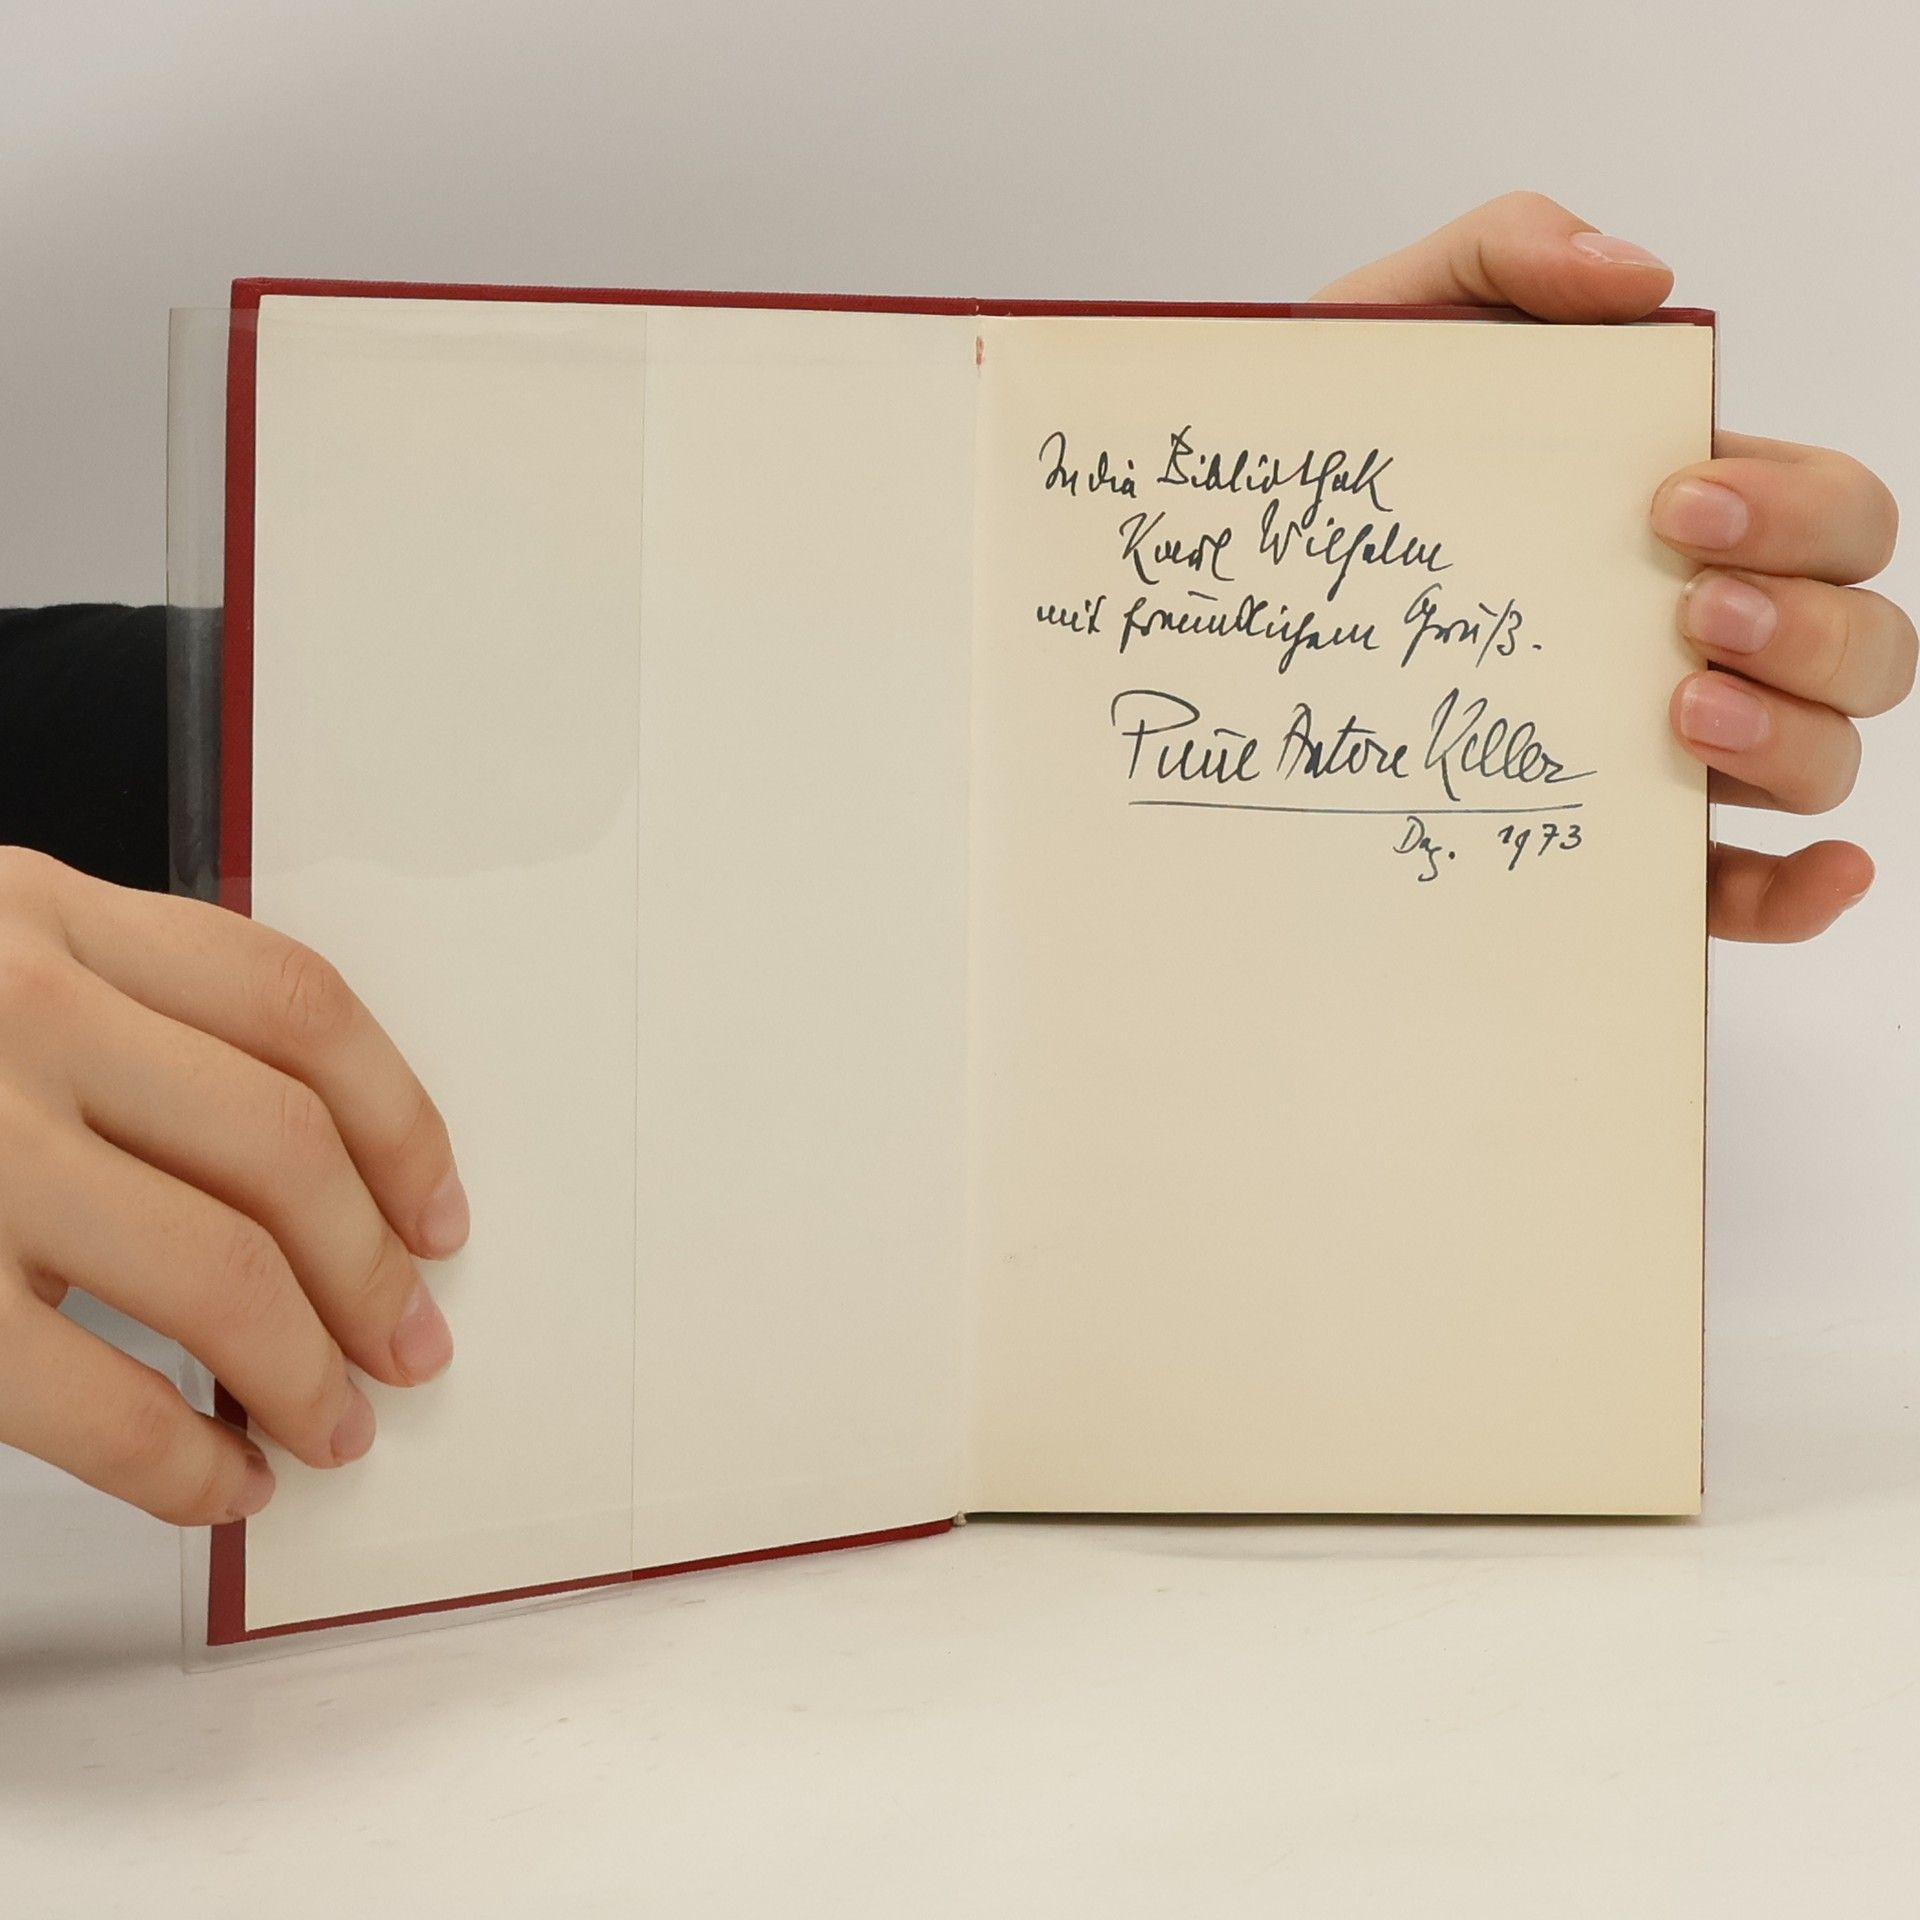 In die Bibliothek
Karl Wilhelm
mit freundlichem Gruß.
Paul Anton Keller
Dez. 1973